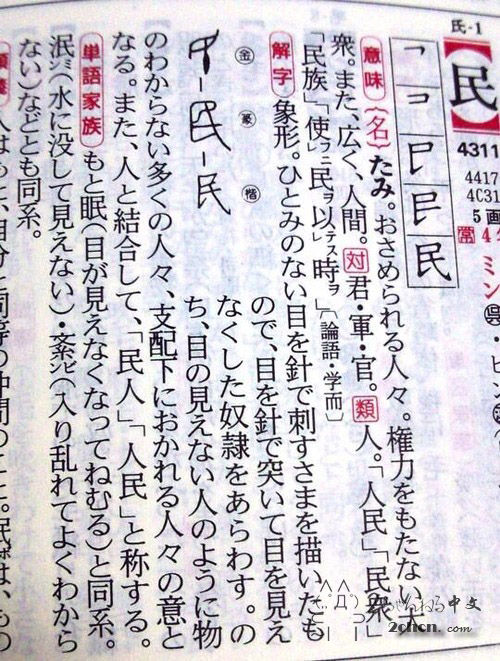 氏-1
【民】
4311
4417
4C31
5画
常 4
ミン 呉・
民
意味 (名) たみ。おさめられる人々。権力をもたない
衆。また、広く、人間。対 君・軍・官。類 人。「人民」「民衆」
「民族」「使フニ民ヲ以テス時ヲ」〔論語・学而〕
解字 象形。ひとみのない目を針で刺すさまを描いたも
ので、目を針で突いて目を見え
なくした奴隷をあらわす。の
ち、目の見えない人のように物
金 篆 楷
民
のわからない多くの人々、支配下におかれる人々の意と
なる。また、人と結合して、「民人」「人民」と称する。
単語家族 もと眠(目が見えなくなってねむる)と同系。
泯ビン(水に没して見えない)・紊ビン(入り乱れてよくわから
ない)などとも同系。
2chcn.com